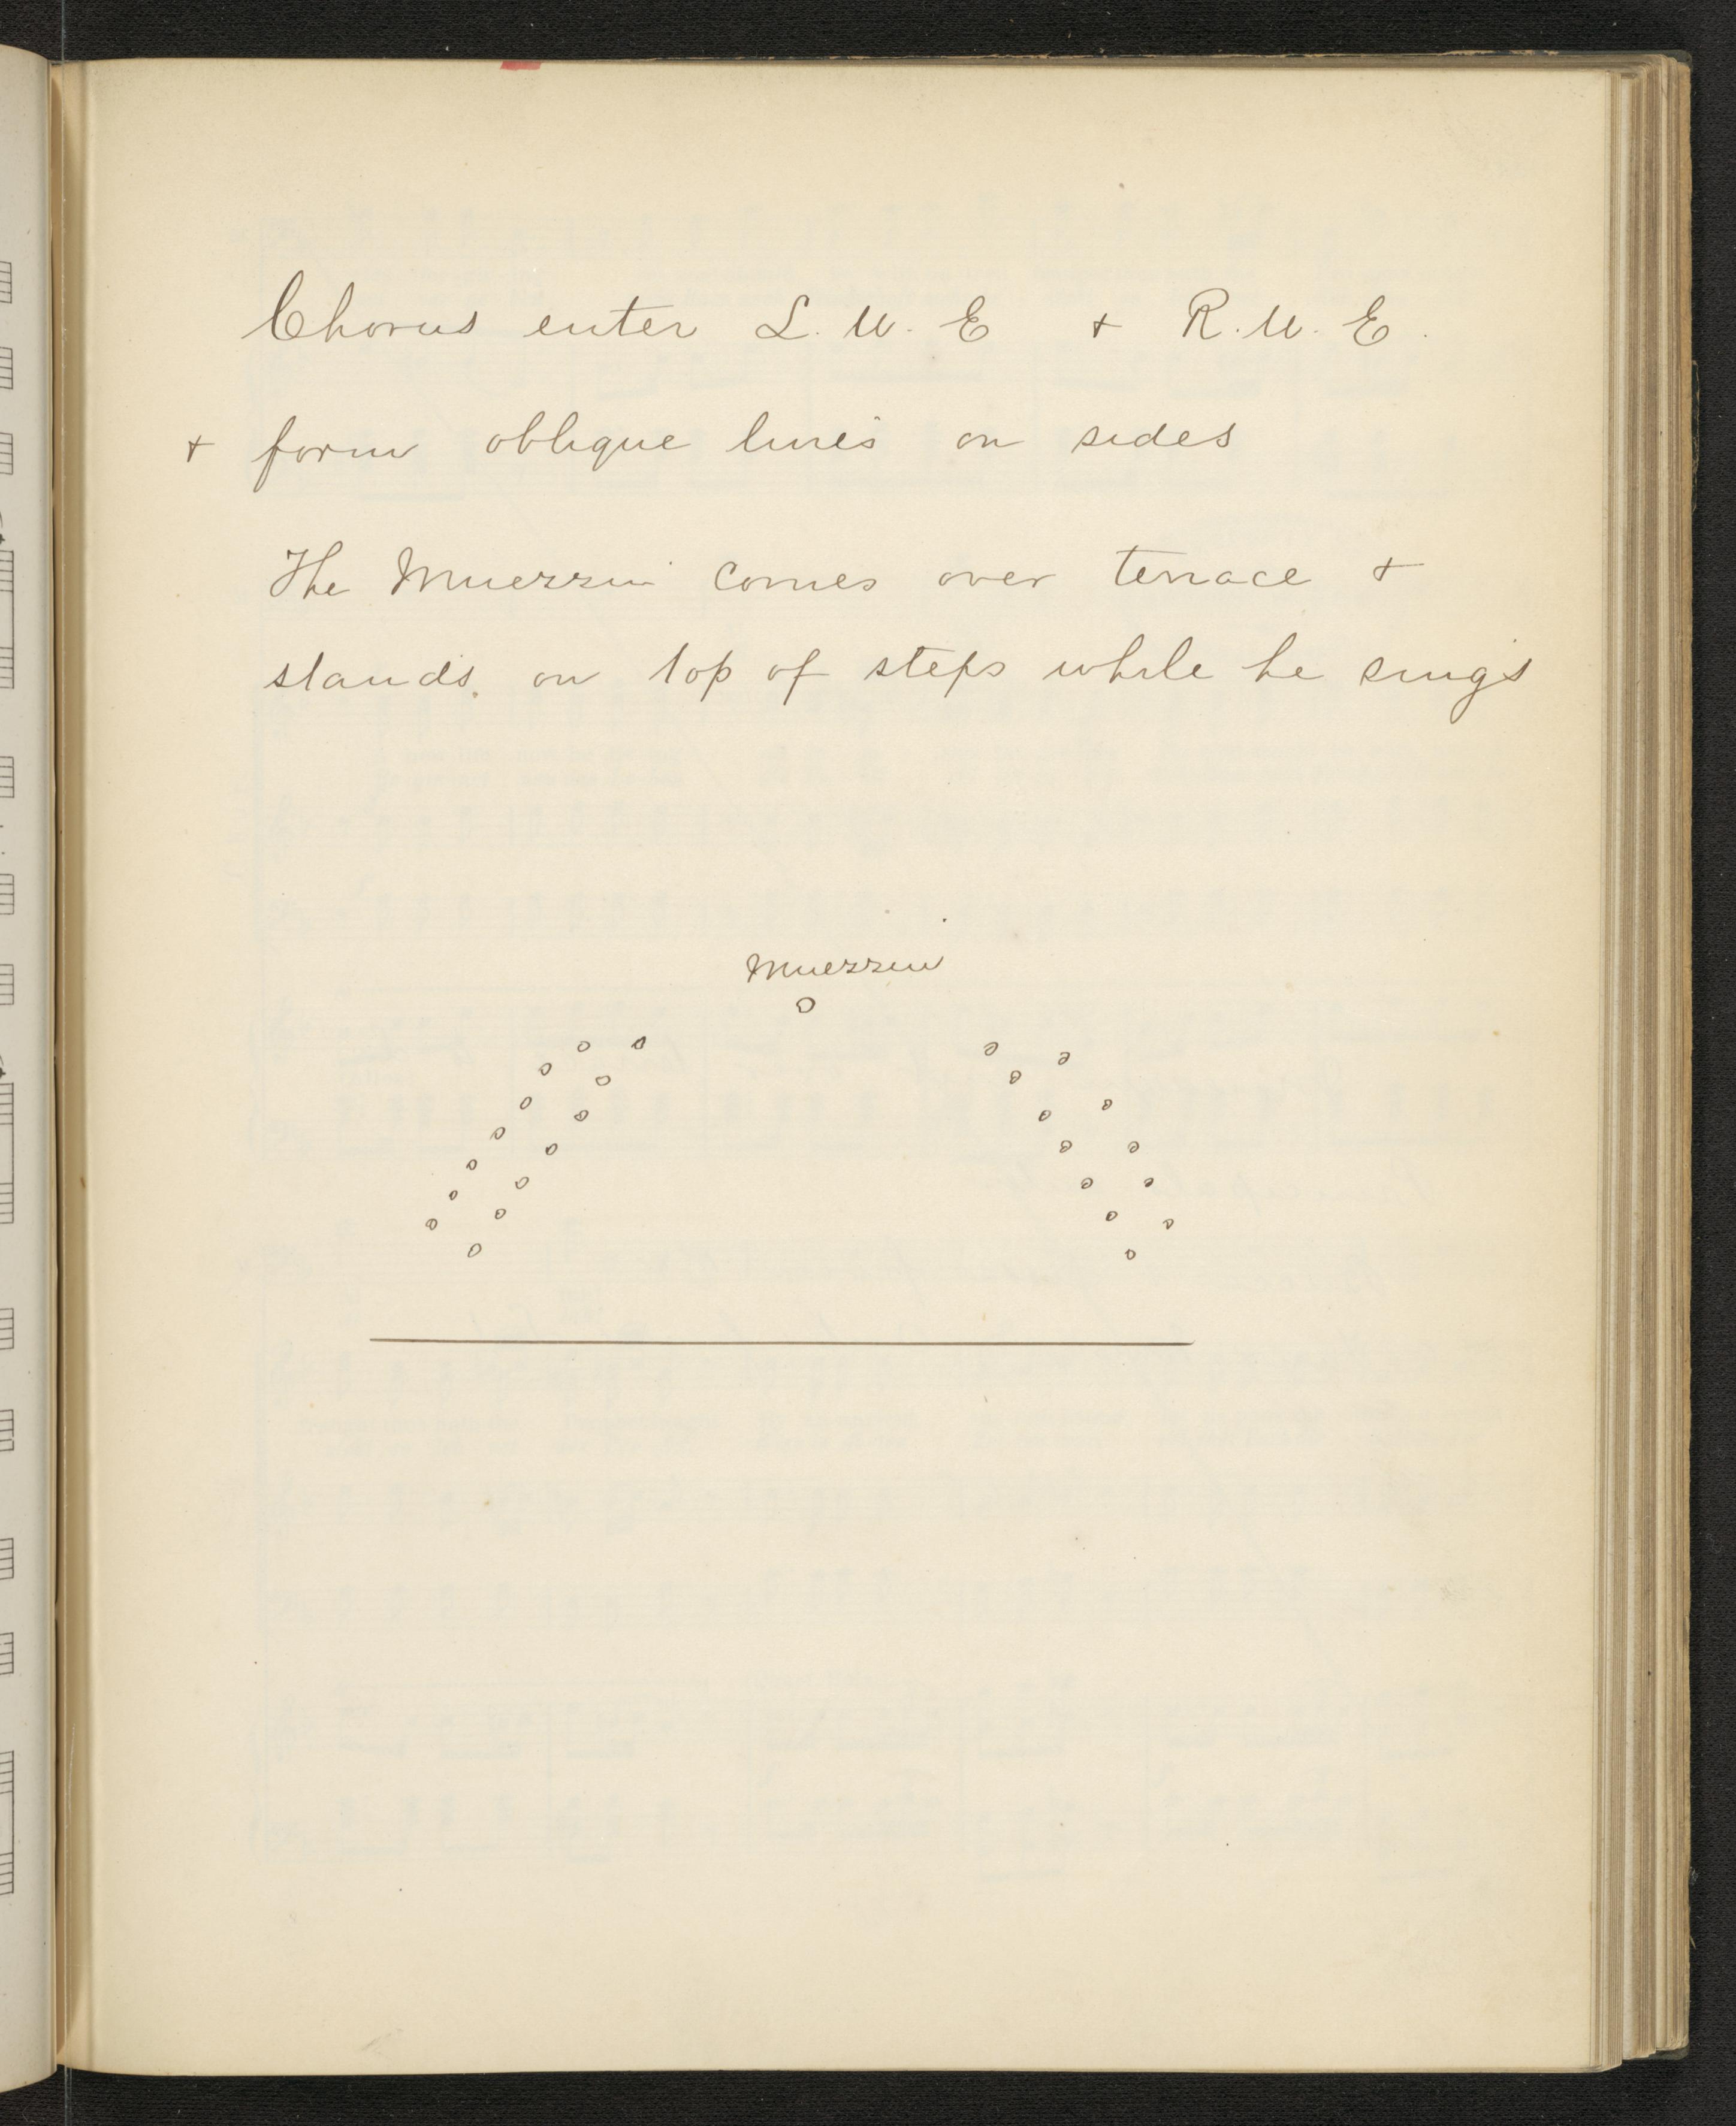 Chorus enter L. U. E + R. U. E.
+ form oblique lines on sides
The Muezzin comes over terrace +
stands on top of steps while he sings
Muezzin